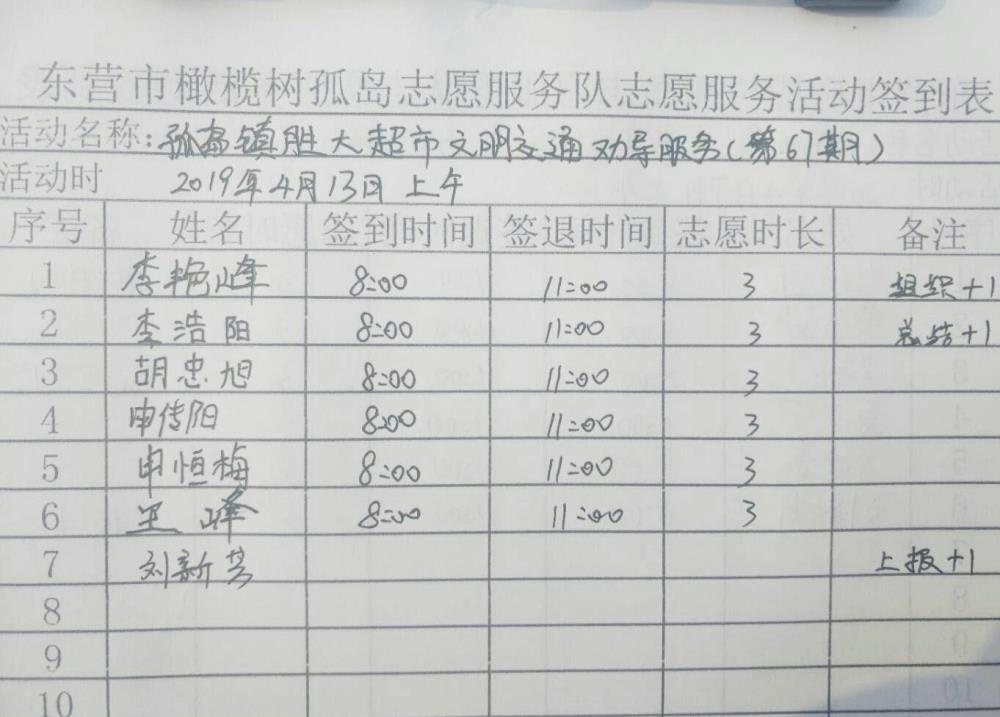 东营市橄榄树孤岛志愿服务队志愿服务活动签到表
活动名称:孤岛镇胜大超市文明交通劝导服务(第67期)
活动时 2019年4月13日 上午
序号 姓名 签到时间 签退时间 志愿时长 备注
1 李艳峰 8:00 11:00 3 组织+1
2 李浩阳 8:00 11:00 3 总结+1
3 胡忠旭 8:00 11:00 3
4 申传阳 8:00 11:00 3
5 申恒梅 8:00 11:00 3
6 王峰 8:00 11:00 3
7 刘新芳 上报+1
8
9
10